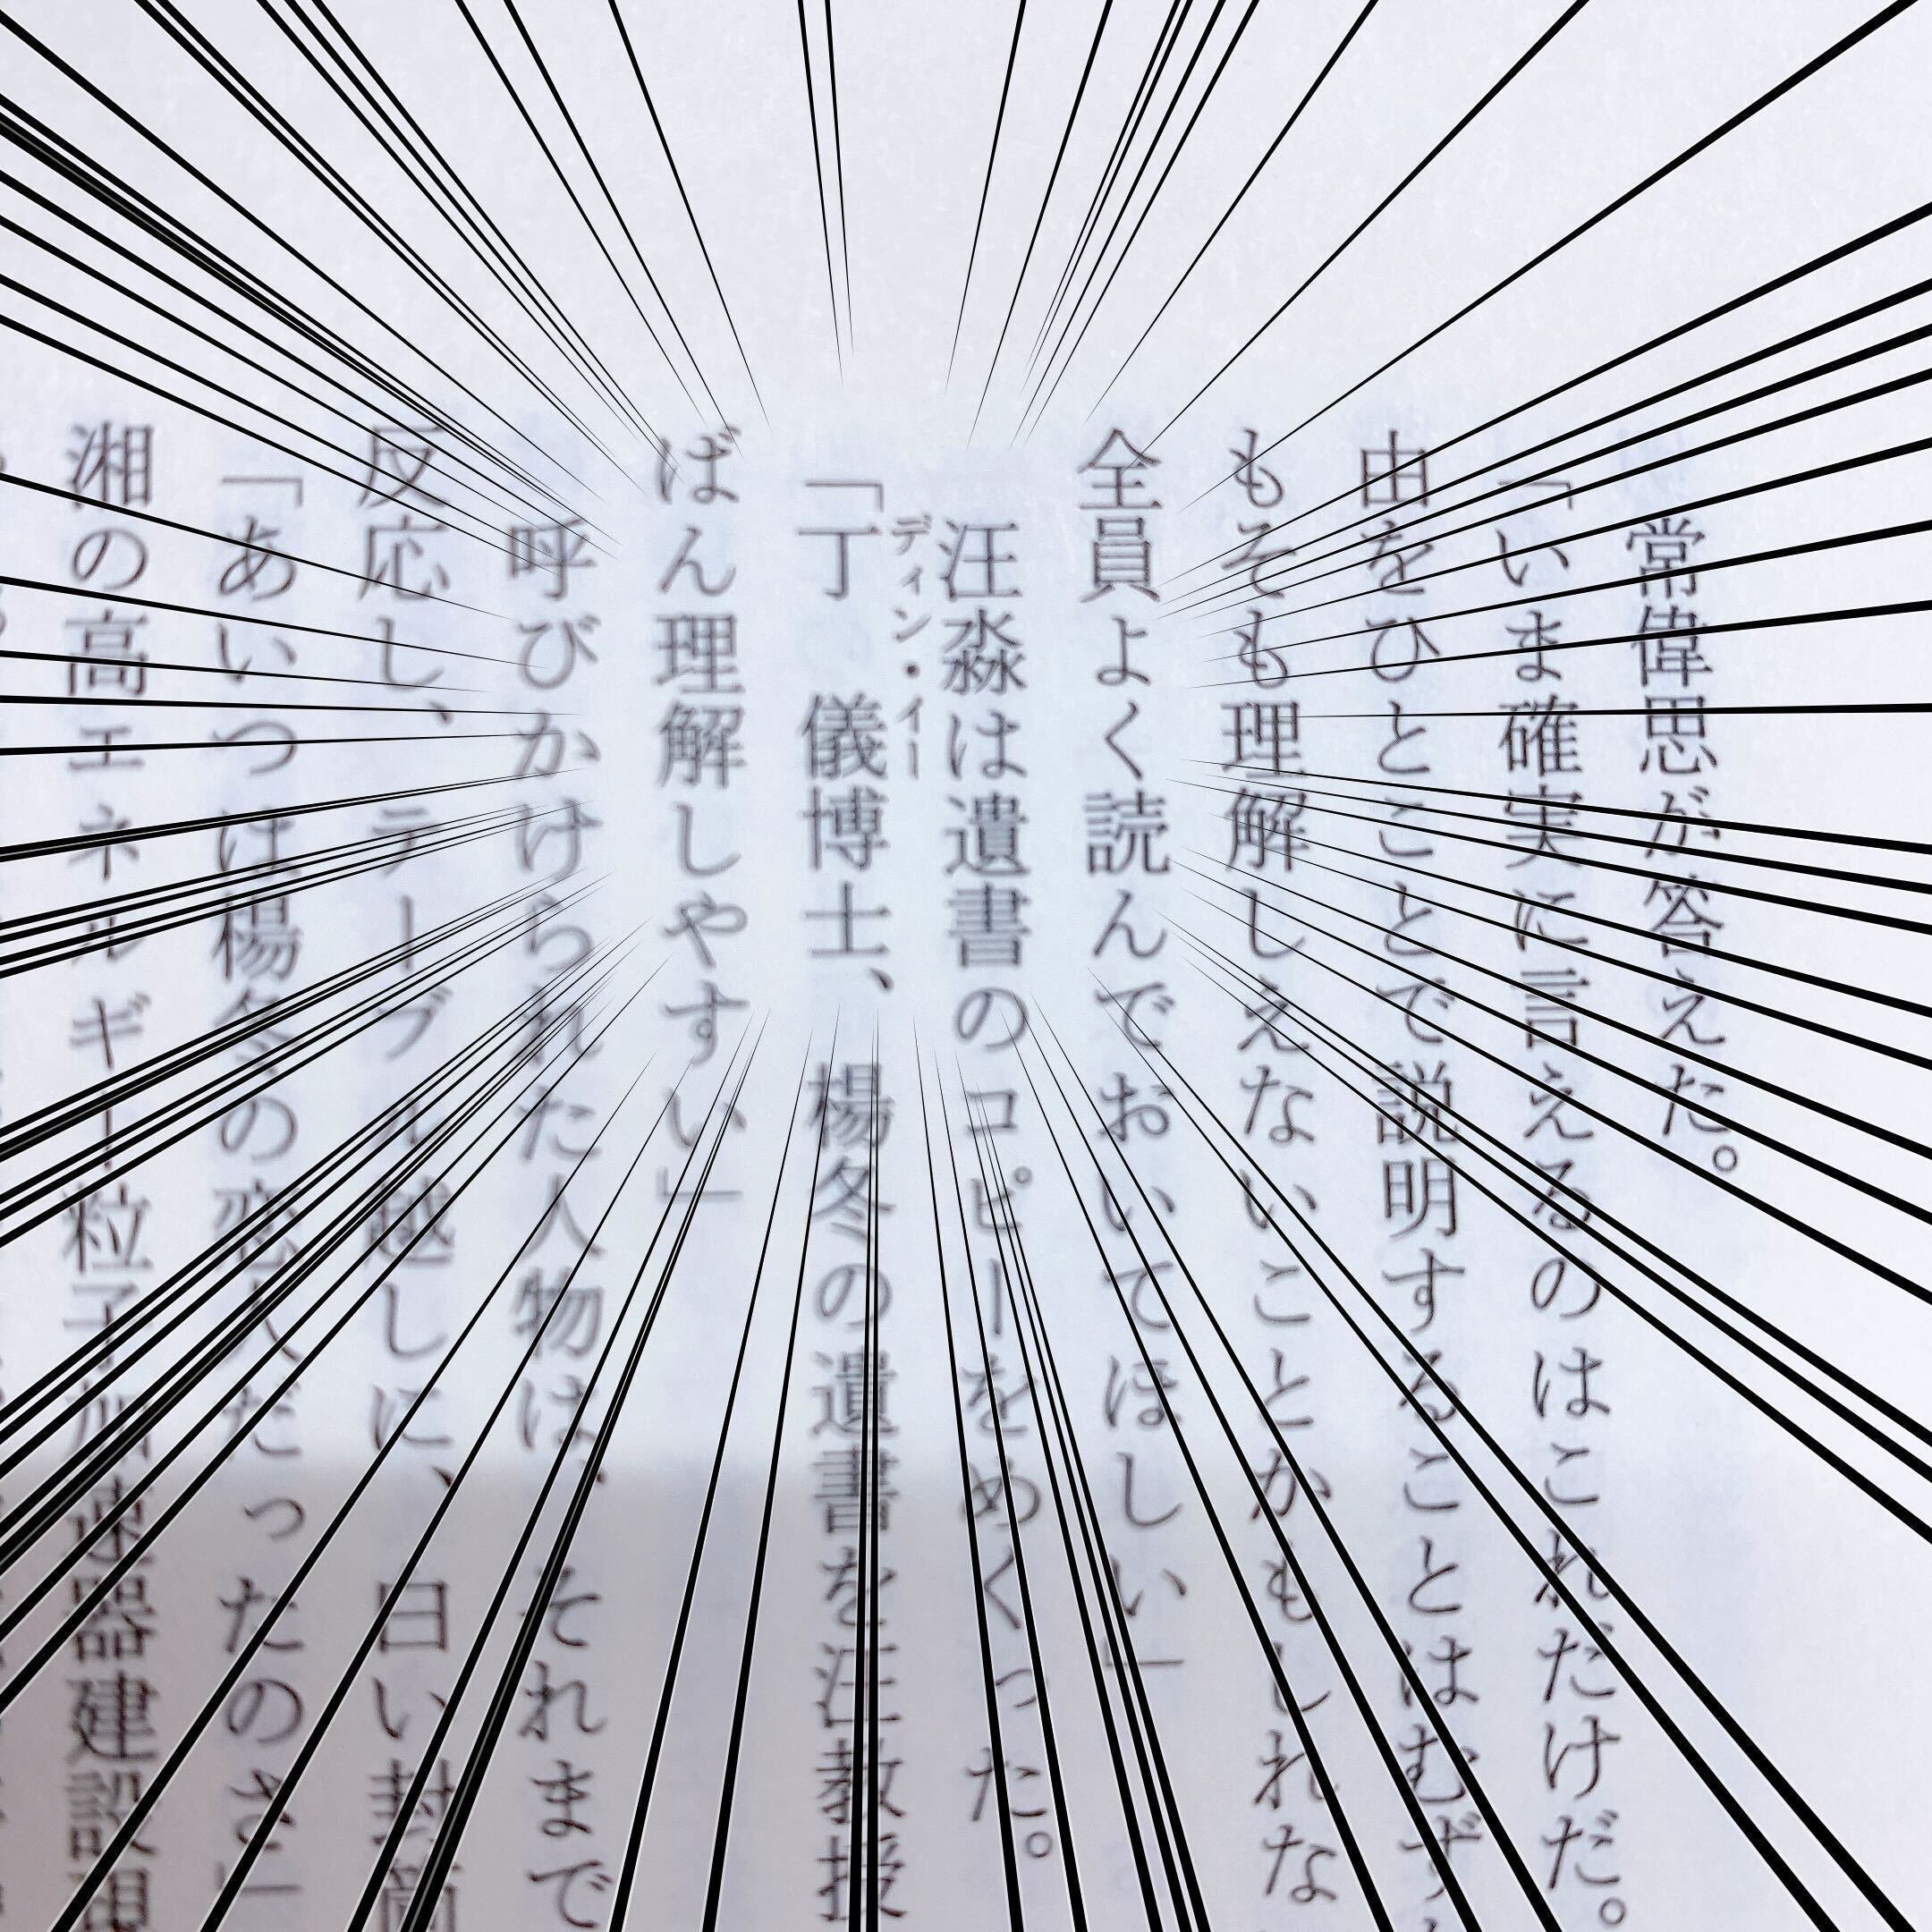 常偉思が答えた。
「いま確実に言えるのはこれだけだ。
由をひとことで説明することはむず
もそも理解しえないことかもしれな
全員よく読んでおいてほしい」
汪淼は遺書のコピーをめくった。
「丁儀博士、楊冬の遺書を汪教授
ディン・イー
ばん理解しやすい」
呼びかけられた人物は、それまで
反応し、テーブル越しに、白い封筒
「あいつは楊冬の恋人だったのさ」
湘の高エネルギー粒子加速器建設現